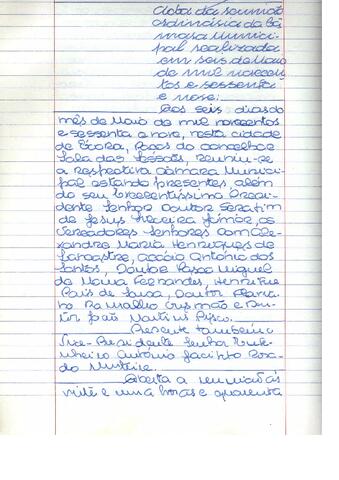 Acta da reunião
ordinária da Câ
mara Munici-
pal realizada
em seis de Maio
de mil novecen
tos e sessenta
e nove.
Aos seis dias do
mês de Maio de mil novecentos
e sessenta e nove, nesta cidade
de Évora, Paços do concelho e
Sala das Sessões, reuniu-se
a respectiva Câmara Munici-
pal estando presentes, além
do seu Excelentíssimo Presi-
dente Senhor Doutor Serafim
de Jesus Silveira Júnior, os
Vereadores Senhores Dom Ale-
xandre Maria Henriques de
Lancastre, Acácio António dos
Santos, Doutor Miguel
de Maia Fernandes, Henrique
de Sousa, Doutor
Ramalho e Dou-
tor João Martins
Presente também o
Vice-Presidente Senhor Enge-
nheiro António Jacinto
do
Aberta a reunião às
vinte e uma horas e quarenta